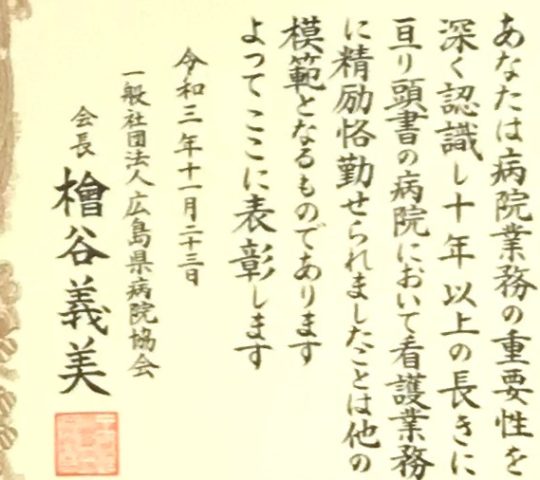 あなたは病院業務の重要性を
深く認識し十年以上の長きに
亘り頭書の病院において看護業務
に精励恪勤せられましたことは他の
模範となるものであります
よってここに表彰します
令和三年十一月二十三日
一般社団法人広島県病院協会
会長 檜谷義美